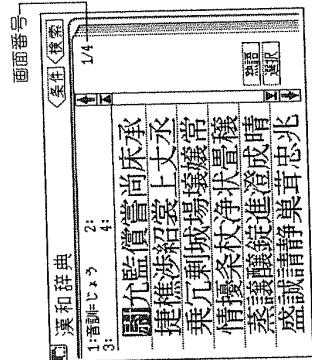 画面番号
漢和辞典
条件 検索
1:音訓=じょう 2:
3: 4:
1/4
允監償嘗尚床承
捷樵渉紹裳上丈丞
乗冗剰城場壌嬢常
情擾条杖浄状畳穣
蒸譲醸錠進澄成晴
盛誠請静巣茸忠兆
熟語
選択